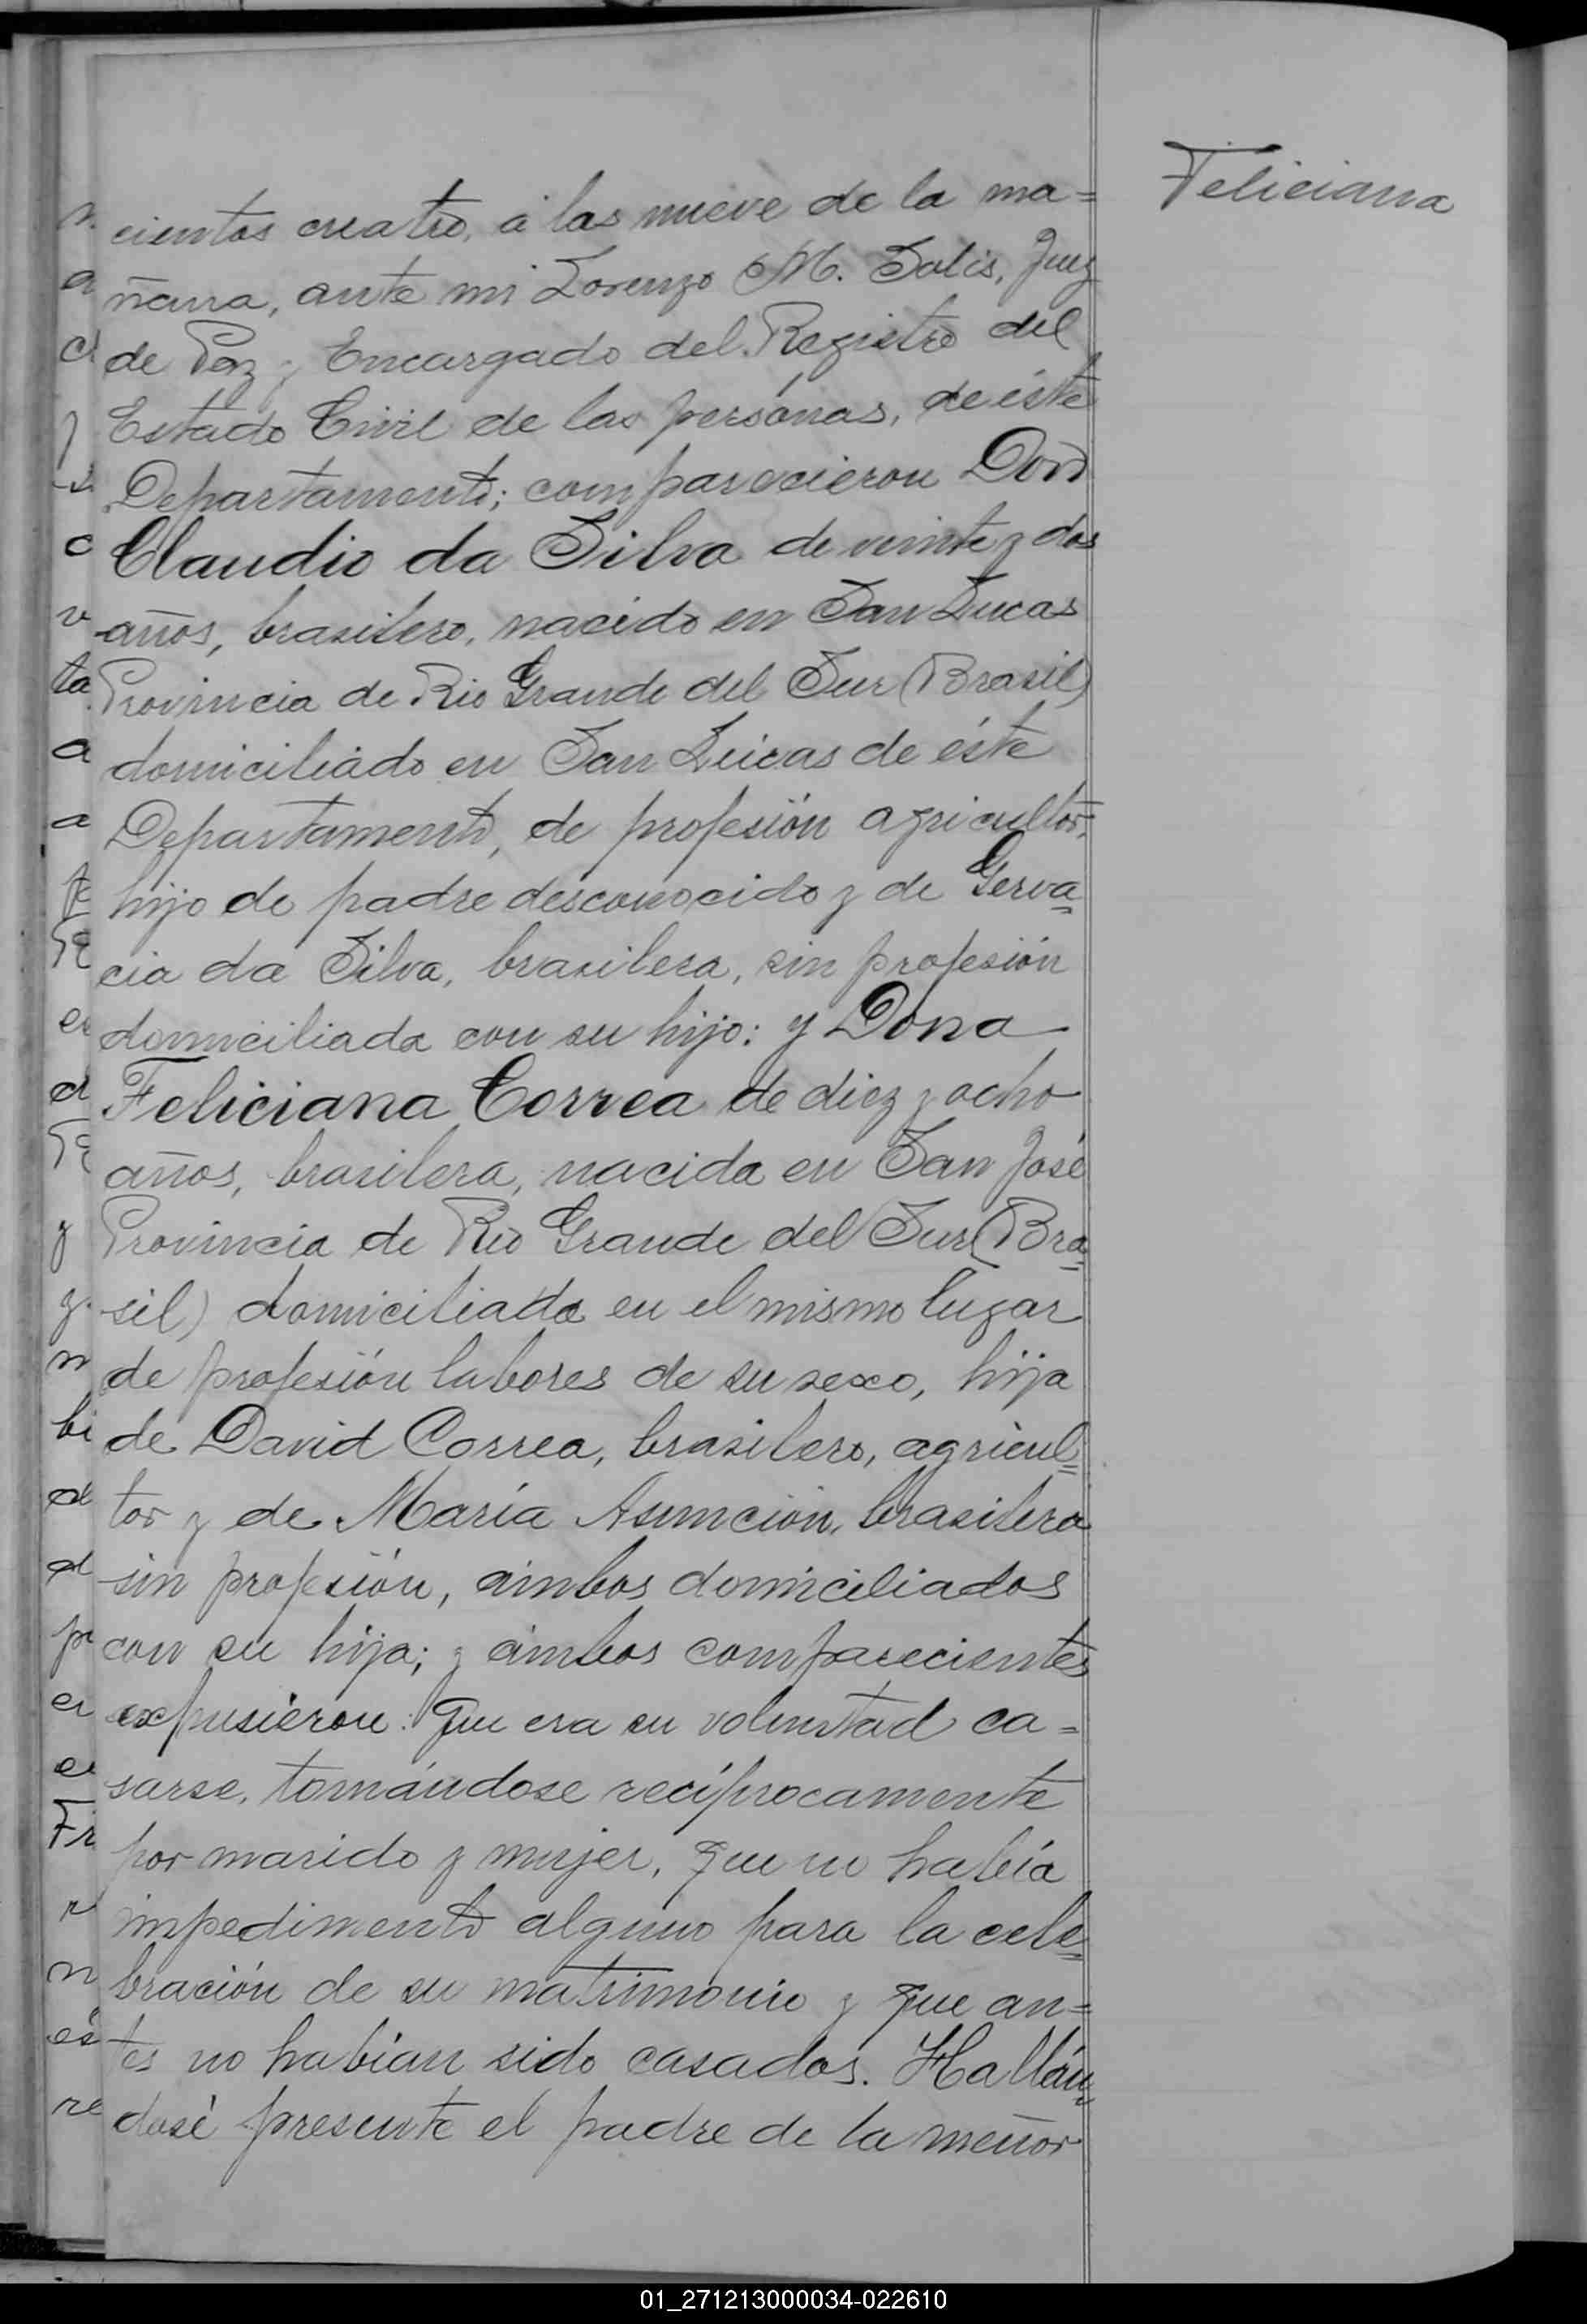 Feliciana
cientos cuatro, á las nueve de la ma=
ñana, ante mi Lorenzo M. Solis, Juez
de Paz y Encargado del Registro del
Estado Civil de las personas, de éste
Departamento; comparecieron Don
Claudio da Silva de veinte y dos
años, brasilero, nacido en San Lucas
Provincia de Rio Grande del Sur (Brasil)
domiciliado en San Lucas de éste
Departamento, de profesión agricultor,
hijo de padre desconocido y de Gerva=
cia da Silva, brasilera, sin profesión
domiciliada con su hijo: y Dona
Feliciana Correa de diez y ocho
años, brasilera, nacida en San José
Provincia de Rio Grande del Sur (Bra=
sil) domiciliada en el mismo lugar
de profesión labores de su sexo, hija
de David Correa, brasilero, agricul=
tor y de María Asunción, brasilera
sin profesión, ambos domiciliados
con su hija; y ambos comparecientes
expusieron: Que era su voluntad ca=
sarse, tomándose recíprocamente
por marido y mujer, que no había
impedimento alguno para la cele=
bración de su matrimonio y que an=
tes no habían sido casados. Hallán=
dose presente el padre de la menor
01_271213000034-022610